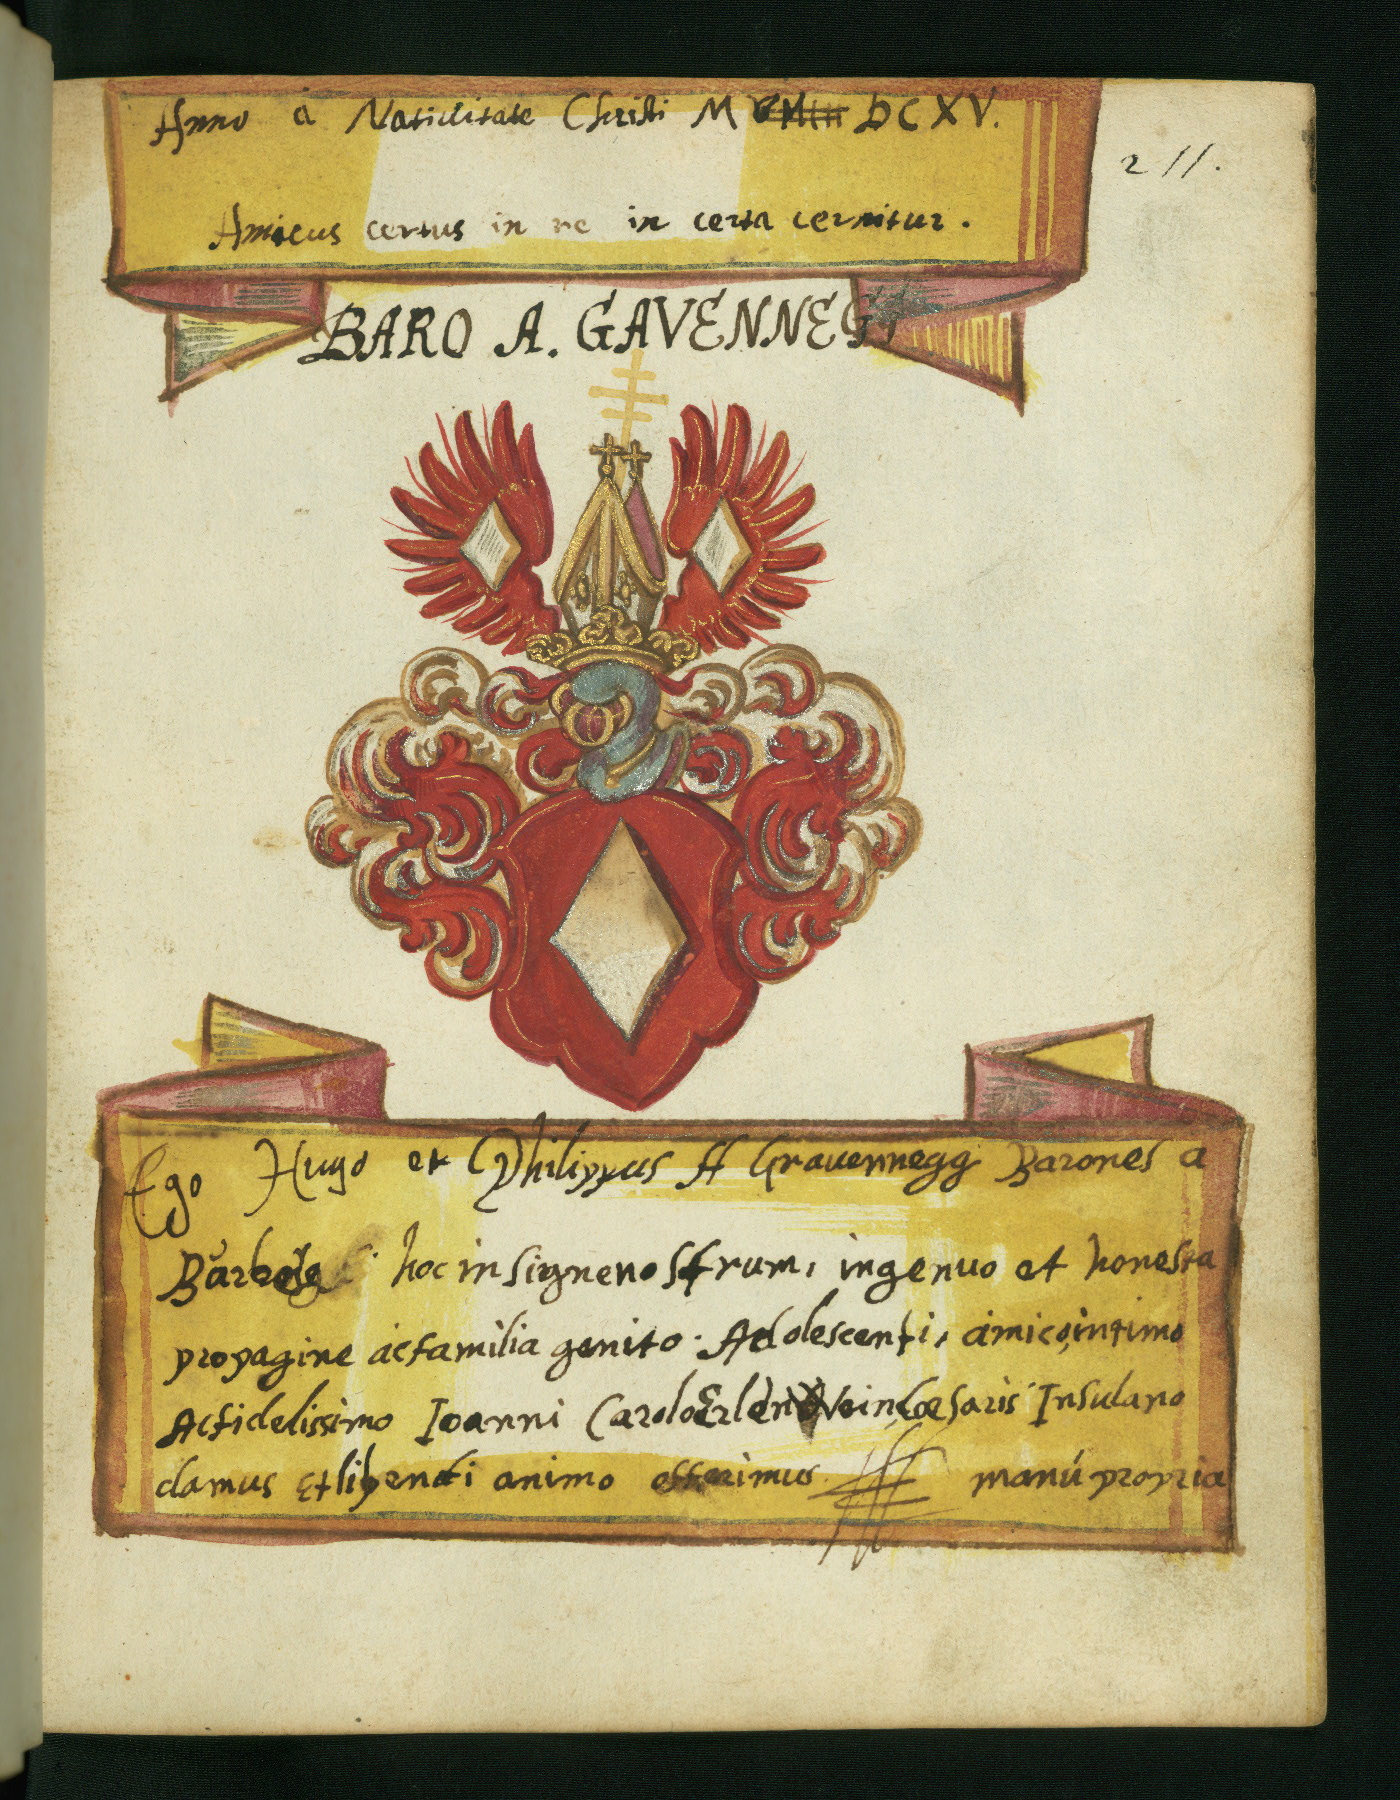 Anno a Natiuitate Christi M DCXV.
211.
Amicus certus in re in certa cernitur.
BARO A. GAVENNEGG
Ego Hugo et Philippus A Grauennegg Barones a
hoc insigne nostrum, ingenuo et honesta
propagine ac familia genito. Adolescenti, amico, intimo
Ac fidelissimo Ioanni Carolo Erlenwein, Cæsaris Insulano
damus et libenti animo offerimus manú propria